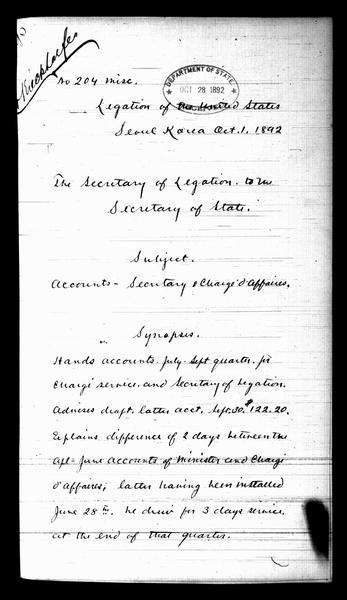 No 204 misc.
DEPARTMENT OF STATE
OCT 28 1892
Legation of the United States
Seoul Korea Oct. 1. 1892
The Secretary of Legation. to the
Secretary of State.
Subject.
Accounts - Secretary & Chargé d'Affaires.
Synopsis.
Hands accounts. July-Sept quarter. for
Chargé service. and Secretary of Legation.
Advises draft. latter acct. Sept. 30. $122.20.
Explains difference of 2 days between the
Apl-June accounts of Minister and Chargé
d'Affaires; latter having been installed
June 28th. he drew for 3 days service
at the end of that quarter.